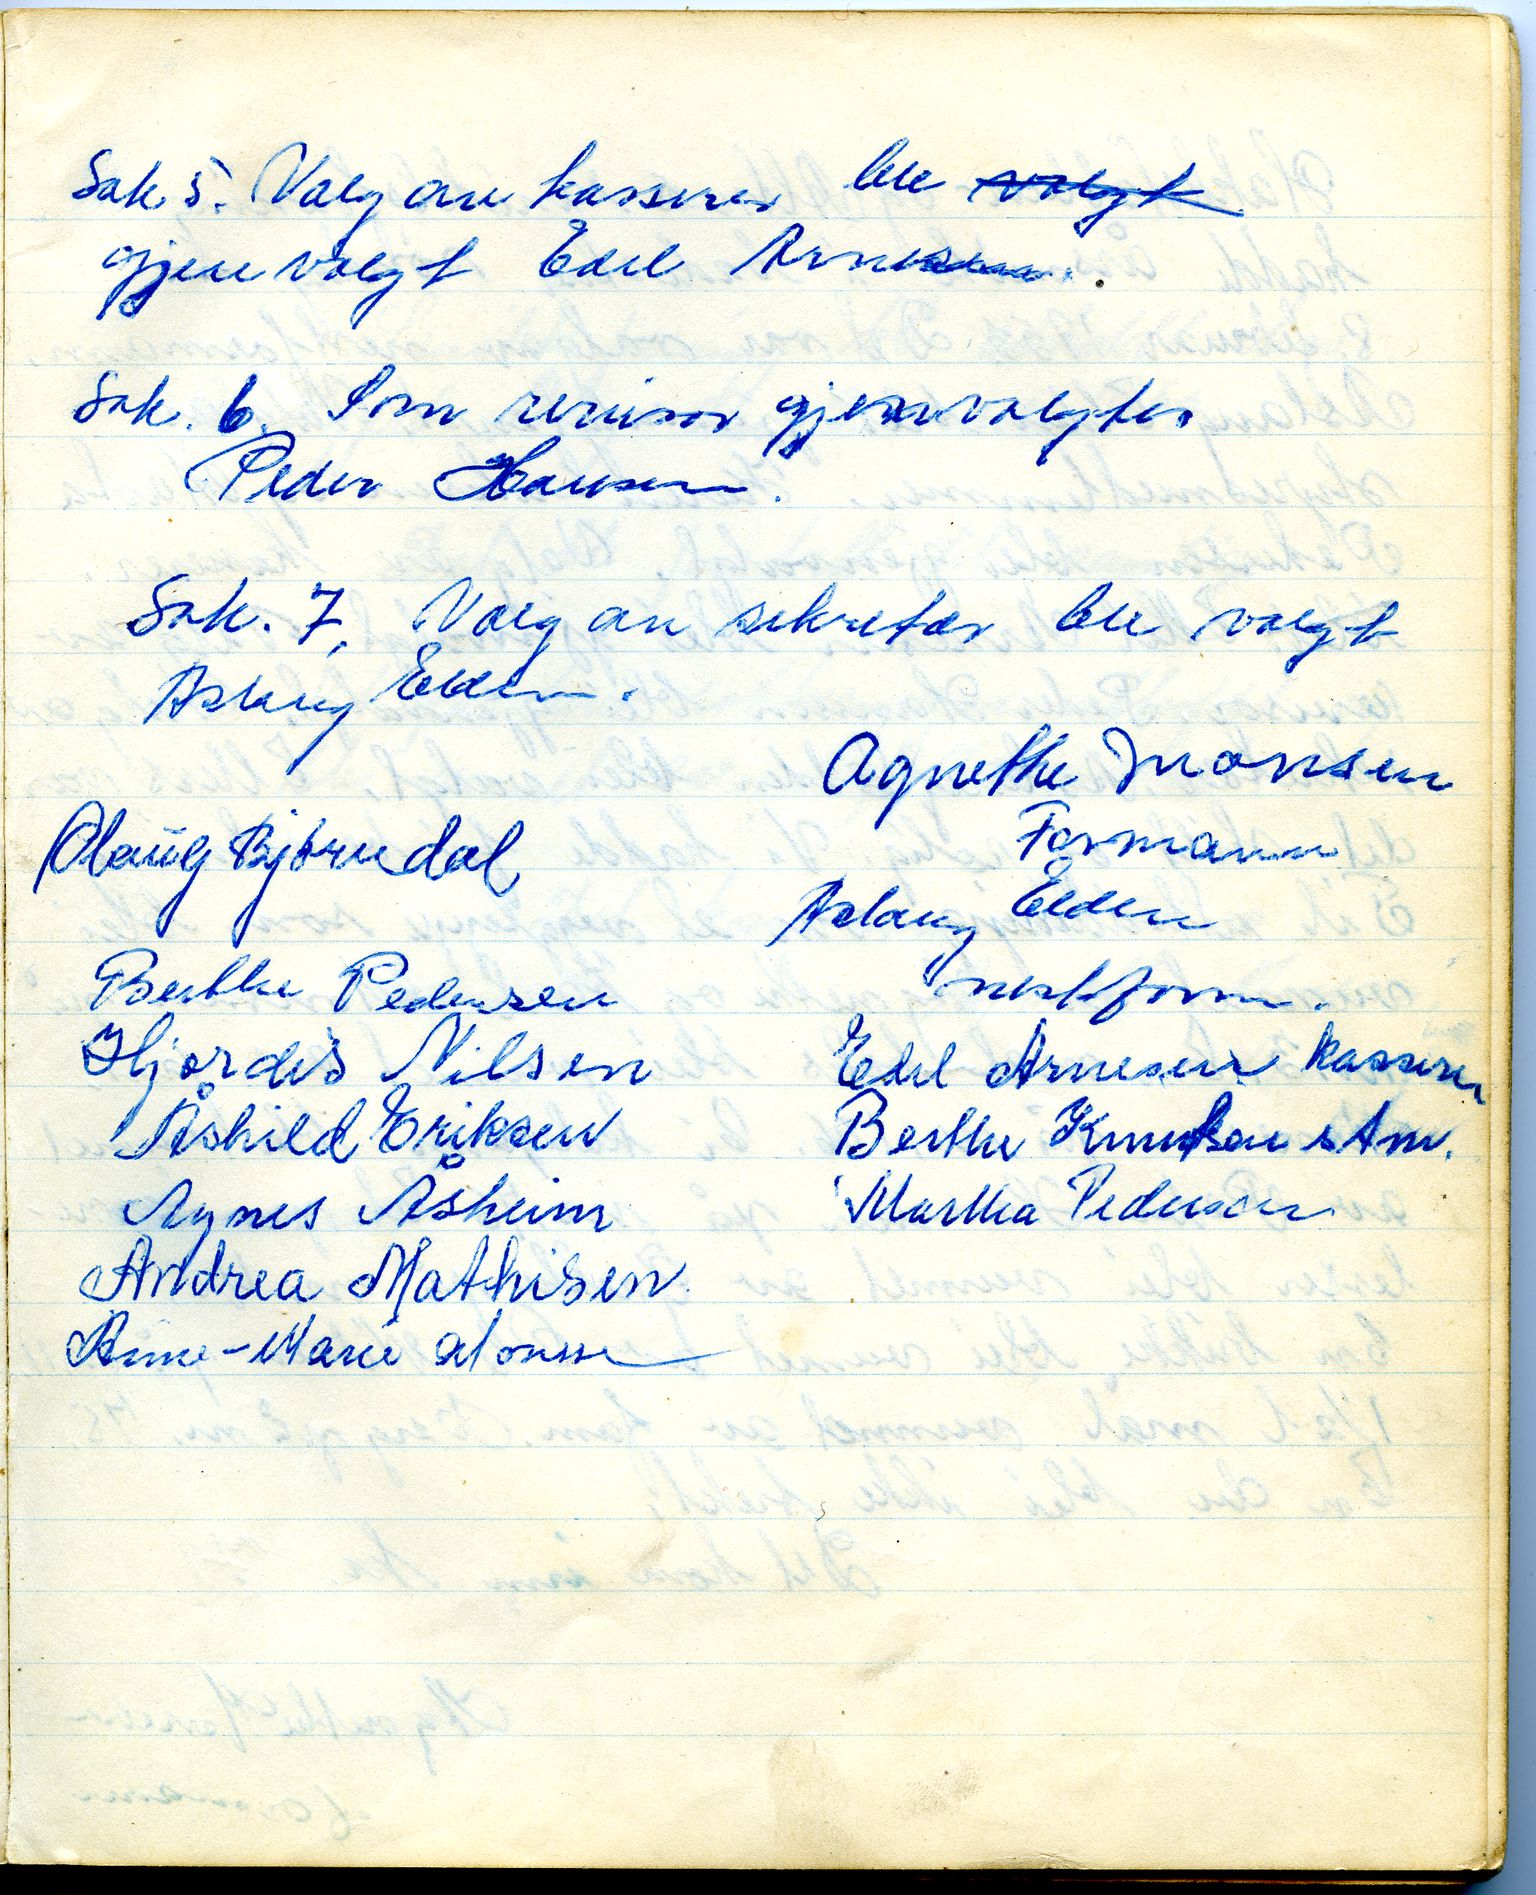 Sak 5. Valg av kasserer ble valgt
gjenvalgt Edel Arnesen.
Sak. 6. Som revisor gjenvalgtes
Peder Hansen.
Sak. 7. Valg av sekretær ble valgt
Aslaug Elden.
Agnethe Monsen
Formann
Olaug Bjørndal
Aslaug Elden
nestform.
Berthe Pedersen
Hjordis Nilsen
Edel Arnesen kasserer
Åshild Eriksen
Berthe Knutsen st m.
Agnes Åsheim
Martha Pedersen
Andrea Mathisen
Anne-Marie Monsen